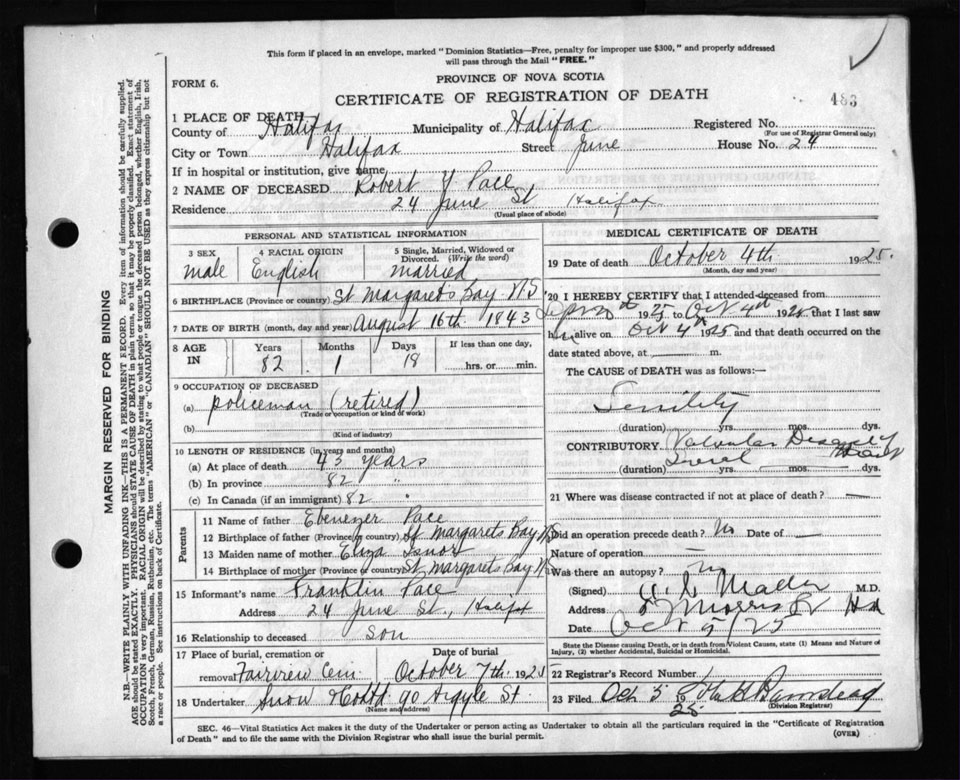 This form if placed in an envelope, marked "Dominion Statistics—Free, penalty for improper use $300," and properly addressed
will pass through the Mail "FREE."
FORM 6.
PROVINCE OF NOVA SCOTIA
CERTIFICATE OF REGISTRATION OF DEATH
483
1 PLACE OF DEATH
County of Halifax Municipality of Halifax Registered No.
(For use of Registrar General only)
City or Town Halifax Street June House No. 24
If in hospital or institution, give name
2 NAME OF DECEASED Robert Y Pace
Residence 24 June St Halifax
(Usual place of abode)
PERSONAL AND STATISTICAL INFORMATION
3 SEX male
4 RACIAL ORIGIN English
5 Single, Married, Widowed or Divorced. (Write the word) married
6 BIRTHPLACE (Province or country) St Margaret's Bay NS
7 DATE OF BIRTH (month, day and year) August 16th 1843
8 AGE IN Years 82 Months 1 Days 18 If less than one day, hrs. or min.
9 OCCUPATION OF DECEASED
(a) policeman (retired)
(Trade or occupation or kind of work)
(b)
(Kind of industry)
10 LENGTH OF RESIDENCE (in years and months)
(a) At place of death 43 years
(b) In province 82 "
(c) In Canada (if an immigrant) 82 "
Parents
11 Name of father Ebenezer Pace
12 Birthplace of father (Province or country) St Margarets Bay NS
13 Maiden name of mother Eliza Isnor
14 Birthplace of mother (Province or country) St Margarets Bay N
15 Informant's name Franklin Pace
Address 24 June St., Halifax
16 Relationship to deceased son
17 Place of burial, cremation or removal Fairview Cem
Date of burial October 7th 1925
18 Undertaker Snow & Co Ltd 90 Argyle St.
(Name and address)
MEDICAL CERTIFICATE OF DEATH
19 Date of death October 4th 1925.
(Month, day and year)
20 I HEREBY CERTIFY that I attended deceased from
Sept 20th 1925 to Oct 4th 1925 that I last saw
him alive on Oct 4th 1925 and that death occurred on the
date stated above, at m.
The CAUSE of DEATH was as follows:—
Senility
(duration) yrs. mos. dys.
CONTRIBUTORY Valvular Disease of Heart
(duration) Several yrs. mos. dys.
21 Where was disease contracted if not at place of death?
Did an operation precede death? No Date of
Nature of operation
Was there an autopsy? no
(Signed) Mader M.D.
Address Morris St Hx
Date Oct 5/25
State the Disease causing Death, or in Death from Violent Causes, state (1) Means and Nature of
Injury, (2) whether Accidental, Suicidal or Homicidal.
22 Registrar's Record Number
23 Filed Oct 5 1925 Barnstead
(Division Registrar)
SEC. 46—Vital Statistics Act makes it the duty of the Undertaker or person acting as Undertaker to obtain all the particulars required in the "Certificate of Registration
of Death" and to file the same with the Division Registrar who shall issue the burial permit.
(OVER)
MARGIN RESERVED FOR BINDING
N.B.—WRITE PLAINLY WITH UNFADING INK—THIS IS A PERMANENT RECORD. Every item of information should be carefully supplied.
AGE should be stated EXACTLY. PHYSICIANS should STATE CAUSE OF DEATH in plain terms, so that it may be properly classified. Exact statement of
OCCUPATION is very important. RACIAL ORIGIN will be described by stating to what people or tongue the deceased person belonged, whether English, Irish,
Scotch, French, German, Russian, Ruthenian, etc. The terms "AMERICAN" or "CANADIAN" SHOULD NOT BE USED as they express citizenship but not
a race or people. See instructions on back of Certificate.